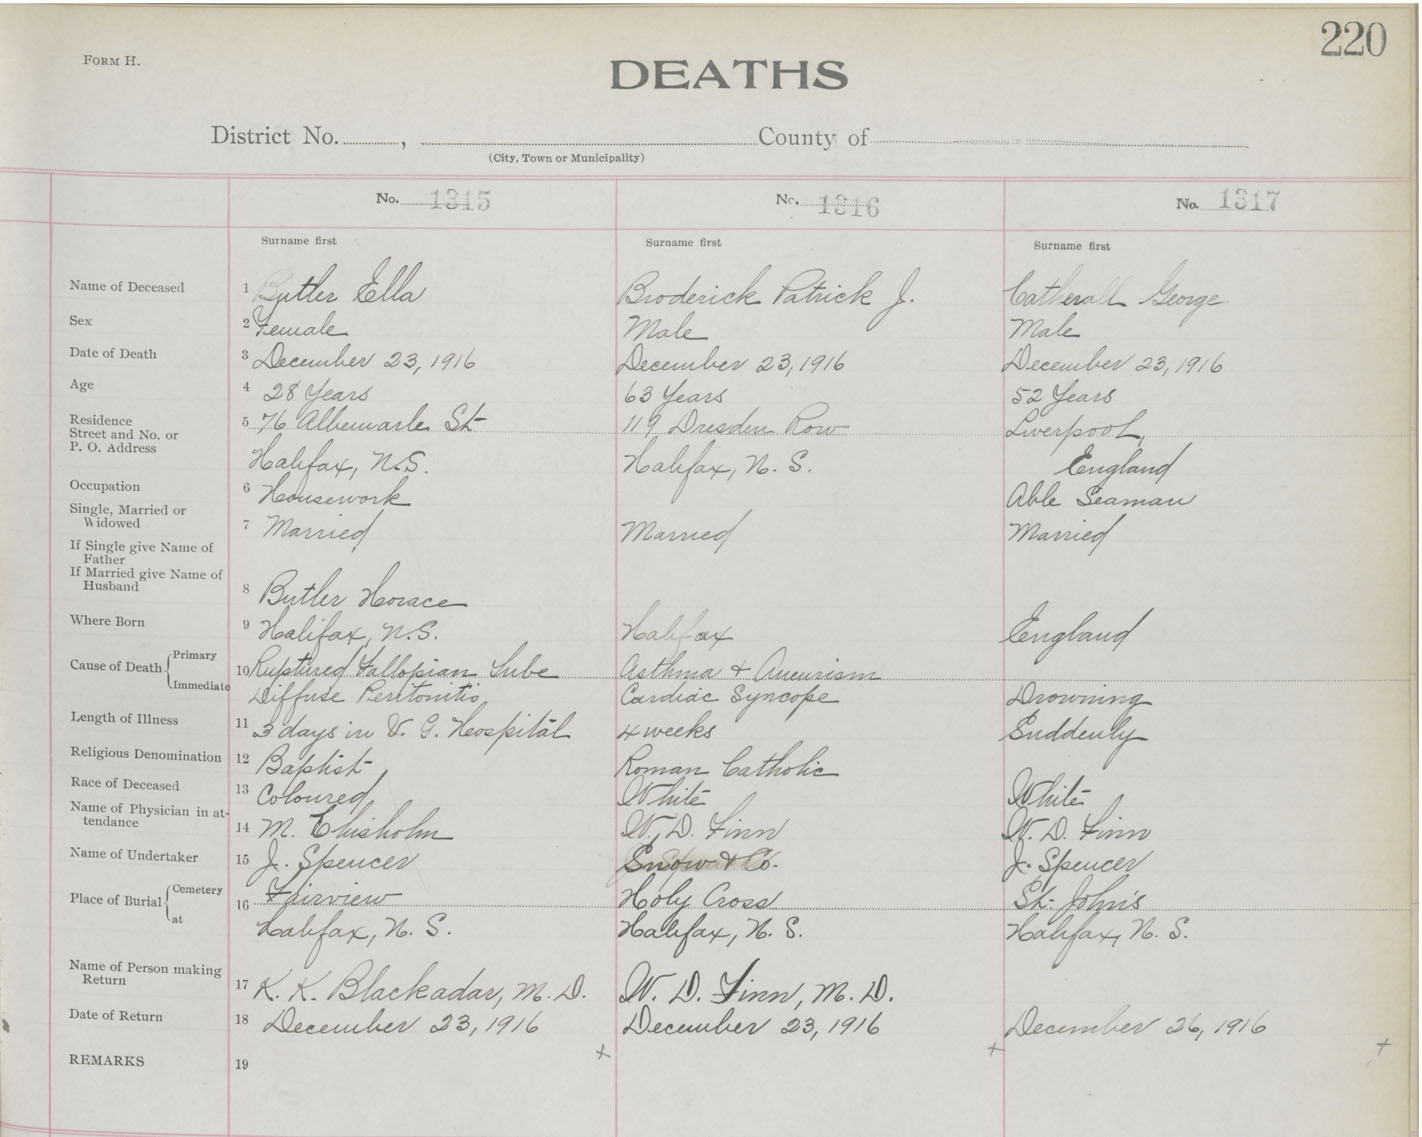 220
FORM H.
DEATHS
District No. , County of
(City, Town or Municipality)
No. 1315 No. 1316 No. 1317
Surname first Surname first Surname first
Name of Deceased 1 Butler Ella Broderick Patrick J. Catherall George
Sex 2 Female Male Male
Date of Death 3 December 23, 1916 December 23, 1916 December 23, 1916
Age 4 28 Years 63 Years 52 Years
Residence
Street and No. or 5 76 Albemarle St 119 Dresden Row Liverpool,
P. O. Address
Halifax, N.S. Halifax, N. S. England
Occupation 6 Housework Able Seaman
Single, Married or
Widowed 7 Married Married Married
If Single give Name of
Father
If Married give Name of
Husband 8 Butler Horace
Where Born 9 Halifax, N.S. Halifax England
Cause of Death Primary 10 Ruptured Fallopian Tube Asthma & Aneurism
Immediate Diffuse Peritonitis Cardiac Syncope Drowning
Length of Illness 11 3 days in V. G. Hospital 4 weeks Suddenly
Religious Denomination 12 Baptist Roman Catholic
Race of Deceased 13 Coloured White White
Name of Physician in at-
tendance 14 M. Chisholm W. D. Finn W. D. Finn
Name of Undertaker 15 J. Spencer Snow & Co. J. Spencer
Place of Burial Cemetery 16 Fairview Holy Cross St. John's
at Halifax, N. S. Halifax, N. S. Halifax, N. S.
Name of Person making
Return 17 K. K. Blackadar, M. D. W. D. Finn, M. D.
Date of Return 18 December 23, 1916 December 23, 1916 December 26, 1916
REMARKS 19 + + +